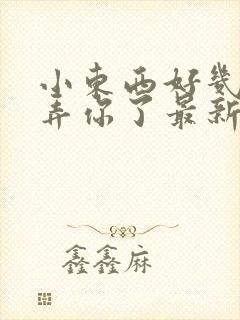 小东西好几
弄你了最新
鑫鑫麻